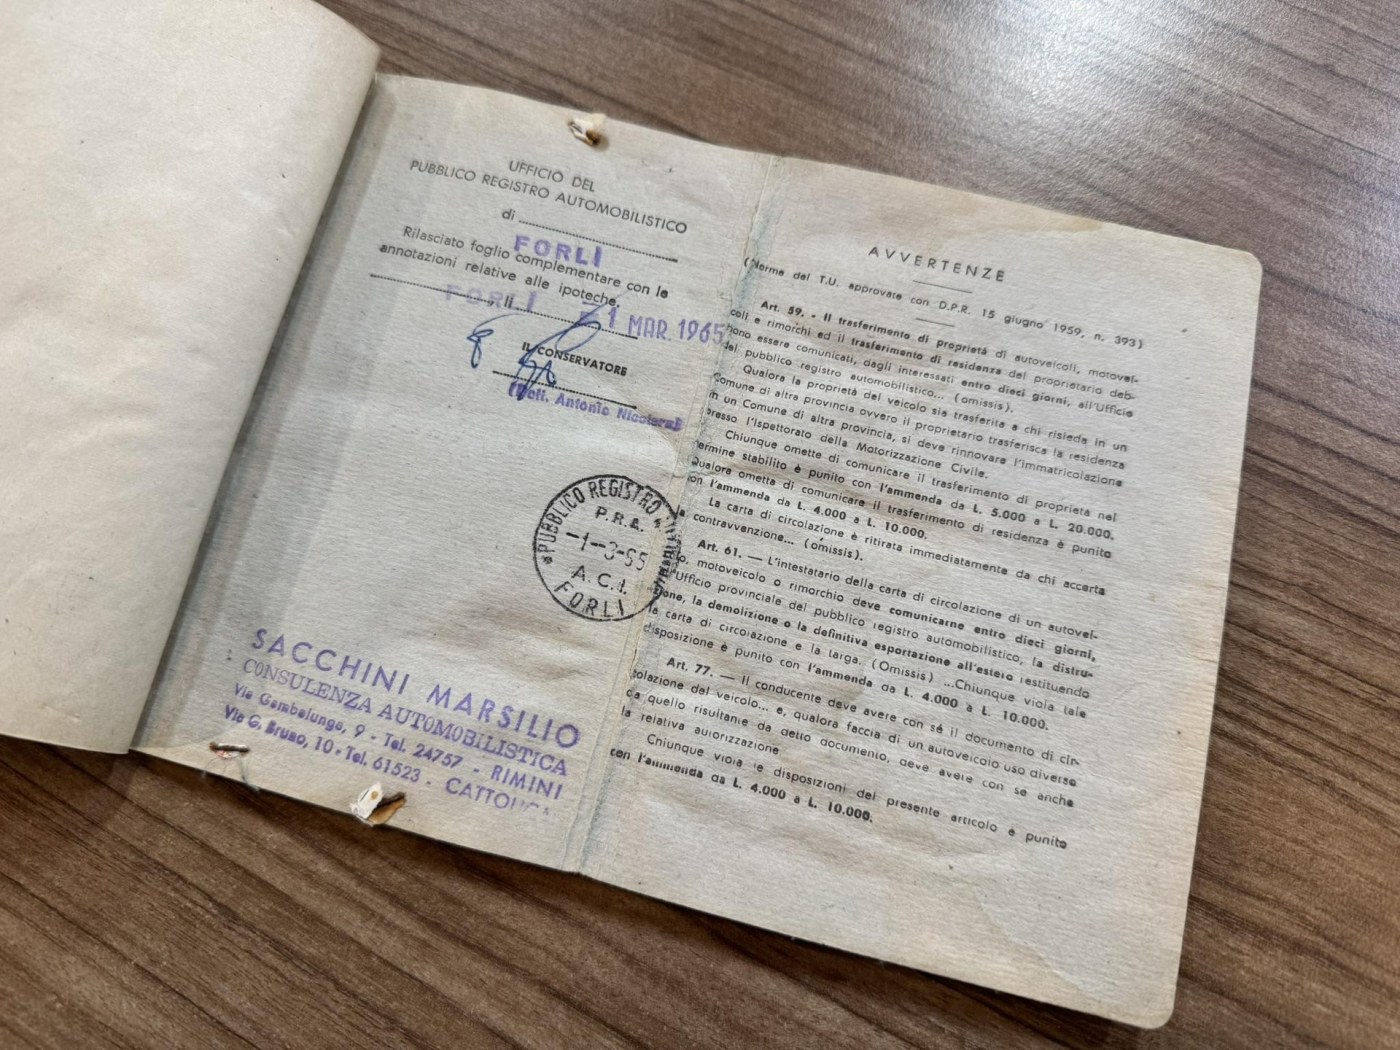 UFFICIO DEL
PUBBLICO REGISTRO AUTOMOBILISTICO
di
FORLÌ
Rilasciato foglio complementare con le
annotazioni relative alle ipoteche.
FORLÌ, lì 1 MAR. 1965
IL CONSERVATORE
(Dott. Antonio Nicotera)
PUBBLICO REGISTRO
P.R.A.
-1-3-65
A.C.I.
FORLI
SACCHINI MARSILIO
CONSULENZA AUTOMOBILISTICA
Via Gambalunga, 9 - Tel. 24757 - RIMINI
Via G. Bruno, 10 - Tel. 61523 - CATTOLICA
AVVERTENZE
(Norme del T.U. approvate con D.P.R. 15 giugno 1959, n. 393)
Art. 59. - Il trasferimento di proprietà di autoveicoli, motovei-
coli e rimorchi ed il trasferimento di residenza del proprietario deb-
bono essere comunicati, dagli interessati entro dieci giorni, all'Ufficio
del pubblico registro automobilistico... (omissis).
Qualora la proprietà del veicolo sia trasferita a chi risieda in un
Comune di altra provincia ovvero il proprietario trasferisca la residenza
in un Comune di altra provincia, si deve rinnovare l'immatricolazione
presso l'Ispettorato della Motorizzazione Civile.
Chiunque omette di comunicare il trasferimento di proprietà nel
termine stabilito è punito con l'ammenda da L. 5.000 a L. 20.000.
Qualora ometta di comunicare il trasferimento di residenza è punito
con l'ammenda da L. 4.000 a L. 10.000.
La carta di circolazione è ritirata immediatamente da chi accerta
la contravvenzione... (omissis).
Art. 61. — L'intestatario della carta di circolazione di un autovei-
colo, motoveicolo o rimorchio deve comunicarne entro dieci giorni,
all'Ufficio provinciale del pubblico registro automobilistico, la distru-
zione, la demolizione o la definitiva esportazione all'estero restituendo
la carta di circolazione e la targa. (Omissis) ...Chiunque viola tale
disposizione è punito con l'ammenda da L. 4.000 a L. 10.000.
Art. 77. — Il conducente deve avere con sé il documento di cir-
colazione del veicolo... e, qualora faccia di un autoveicolo uso diverso
da quello risultante da detto documento, deve avere con se anche
la relativa autorizzazione.
Chiunque viola le disposizioni del presente articolo è punito
con l'ammenda da L. 4.000 a L. 10.000.